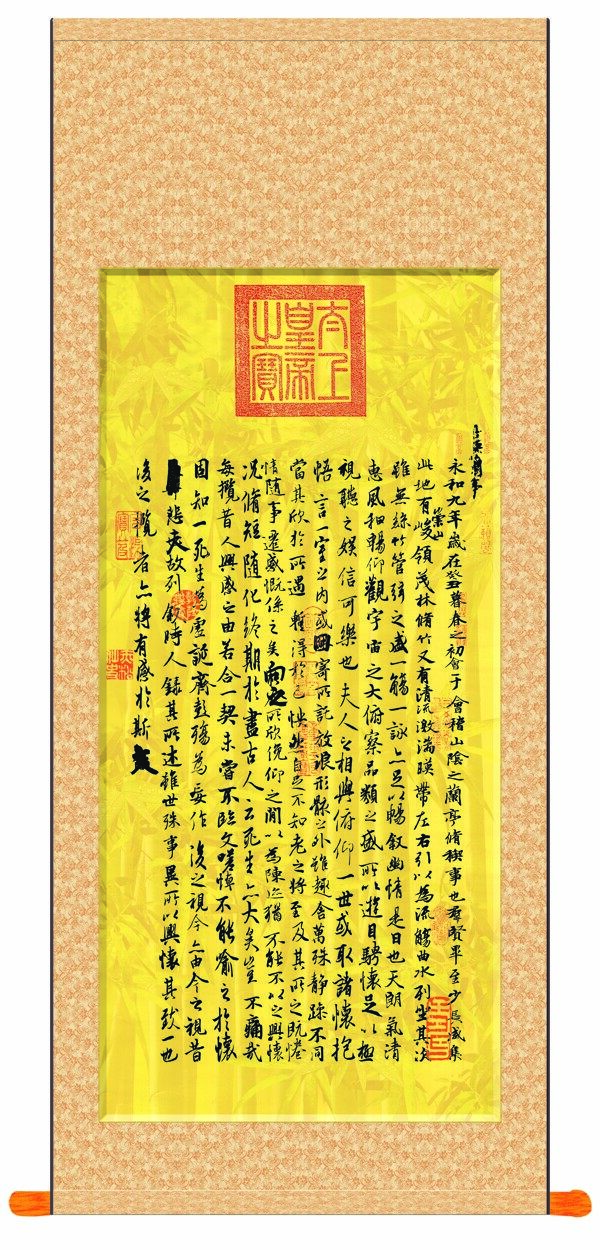 太上
皇帝
之寶
永和九年歲在癸丑暮春之初會于會稽山陰之蘭亭脩稧事也羣賢畢至少長咸集
此地有崇山峻領茂林脩竹又有清流激湍暎帶左右引以為流觴曲水列坐其次
雖無絲竹管弦之盛一觴一詠亦足以暢叙幽情是日也天朗氣清
惠風和暢仰觀宇宙之大俯察品類之盛所以遊目騁懷足以極
視聽之娛信可樂也夫人之相與俯仰一世或取諸懷抱
悟言一室之内或因寄所託放浪形骸之外雖趣舍萬殊静躁不同
當其欣於所遇暫得於己怏然自足不知老之將至及其所之既惓
情隨事遷感慨係之矣向之所欣俛仰之閒以為陳迹猶不能不以之興懷
况脩短隨化終期於盡古人云死生亦大矣豈不痛哉
每攬昔人興感之由若合一契未嘗不臨文嗟悼不能喻之於懷
固知一死生為虛誕齊彭殤為妄作後之視今亦由今之視昔
悲夫故列叙時人錄其所述雖世殊事異所以興懷其致一也
後之攬者亦將有感於斯文